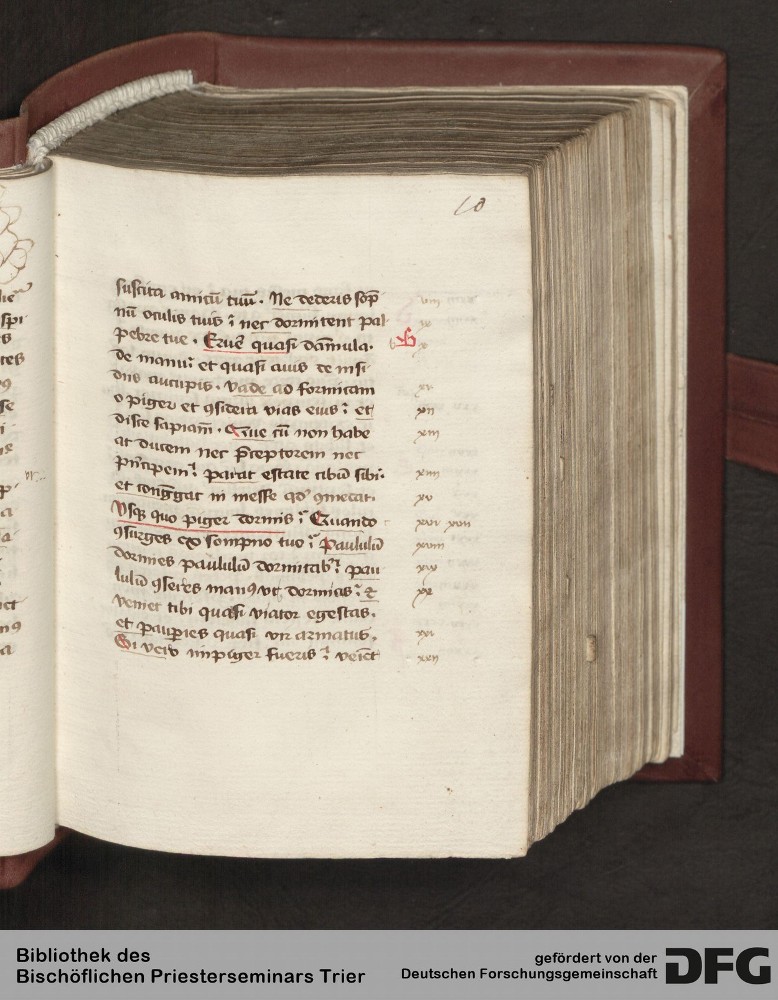 10
suscita amicū tuū . Ne dederis sop̄
nū oculis tuis ⁊ nec dormitent pal-
pebre tue . Erue quasi dāmula .
de manu ⁊ et quasi auis de insi
diis aucupis . Vade ad formicam
o piger et ꝯsidera vias eius ⁊ et
disce sapiam̄ . Que cū non habe
at ducem nec p̄ceptorem nec
principem ⁊ parat estate cibū sibi .
et congͣgat in messe qd̓ ꝯmedat .
Vsqꝫ quo piger dormis ⁊ Quando
ꝯsurges ex sompno tuo ⁊ Paululū
dormies paululū dormitab̓ ⁊ pau
lulū ꝯseres manꝰ vt dormias ⁊ ⁊
veniet tibi quasi viator egestas .
et pauꝑies quasi vir armatus .
Si vero impiger fueris ⁊ veīet
viii
ix
x
xi
xii
xiii
xiiii
xv
xvi xvii
xviii
xix
xx
xxi
xxii
Bibliothek des
Bischöflichen Priesterseminars Trier
gefördert von der
Deutschen Forschungsgemeinschaft
DFG